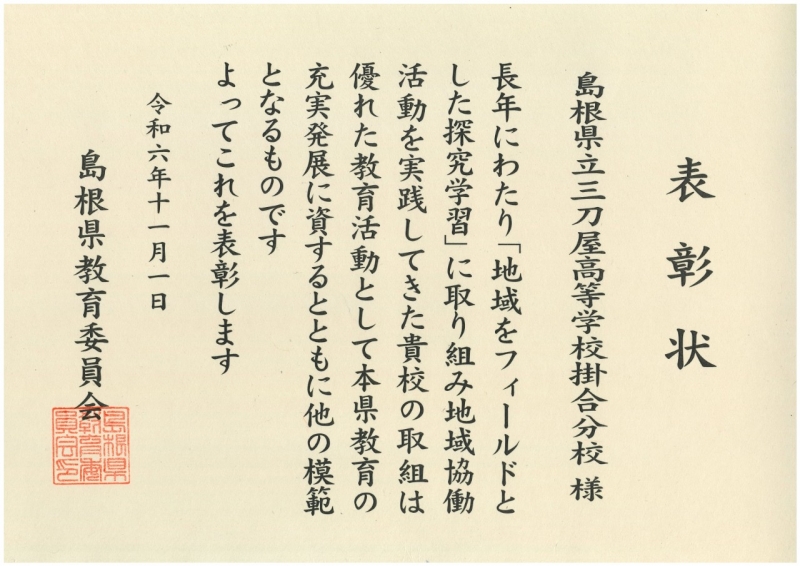 表彰状
島根県立三刀屋高等学校掛合分校 様
長年にわたり「地域をフィールドと
した探究学習」に取り組み地域協働
活動を実践してきた貴校の取組は
優れた教育活動として本県教育の
充実発展に資するとともに他の模範
となるものです
よってこれを表彰します
令和六年十一月一日
島根県教育委員会
島根県
教育委
員会印